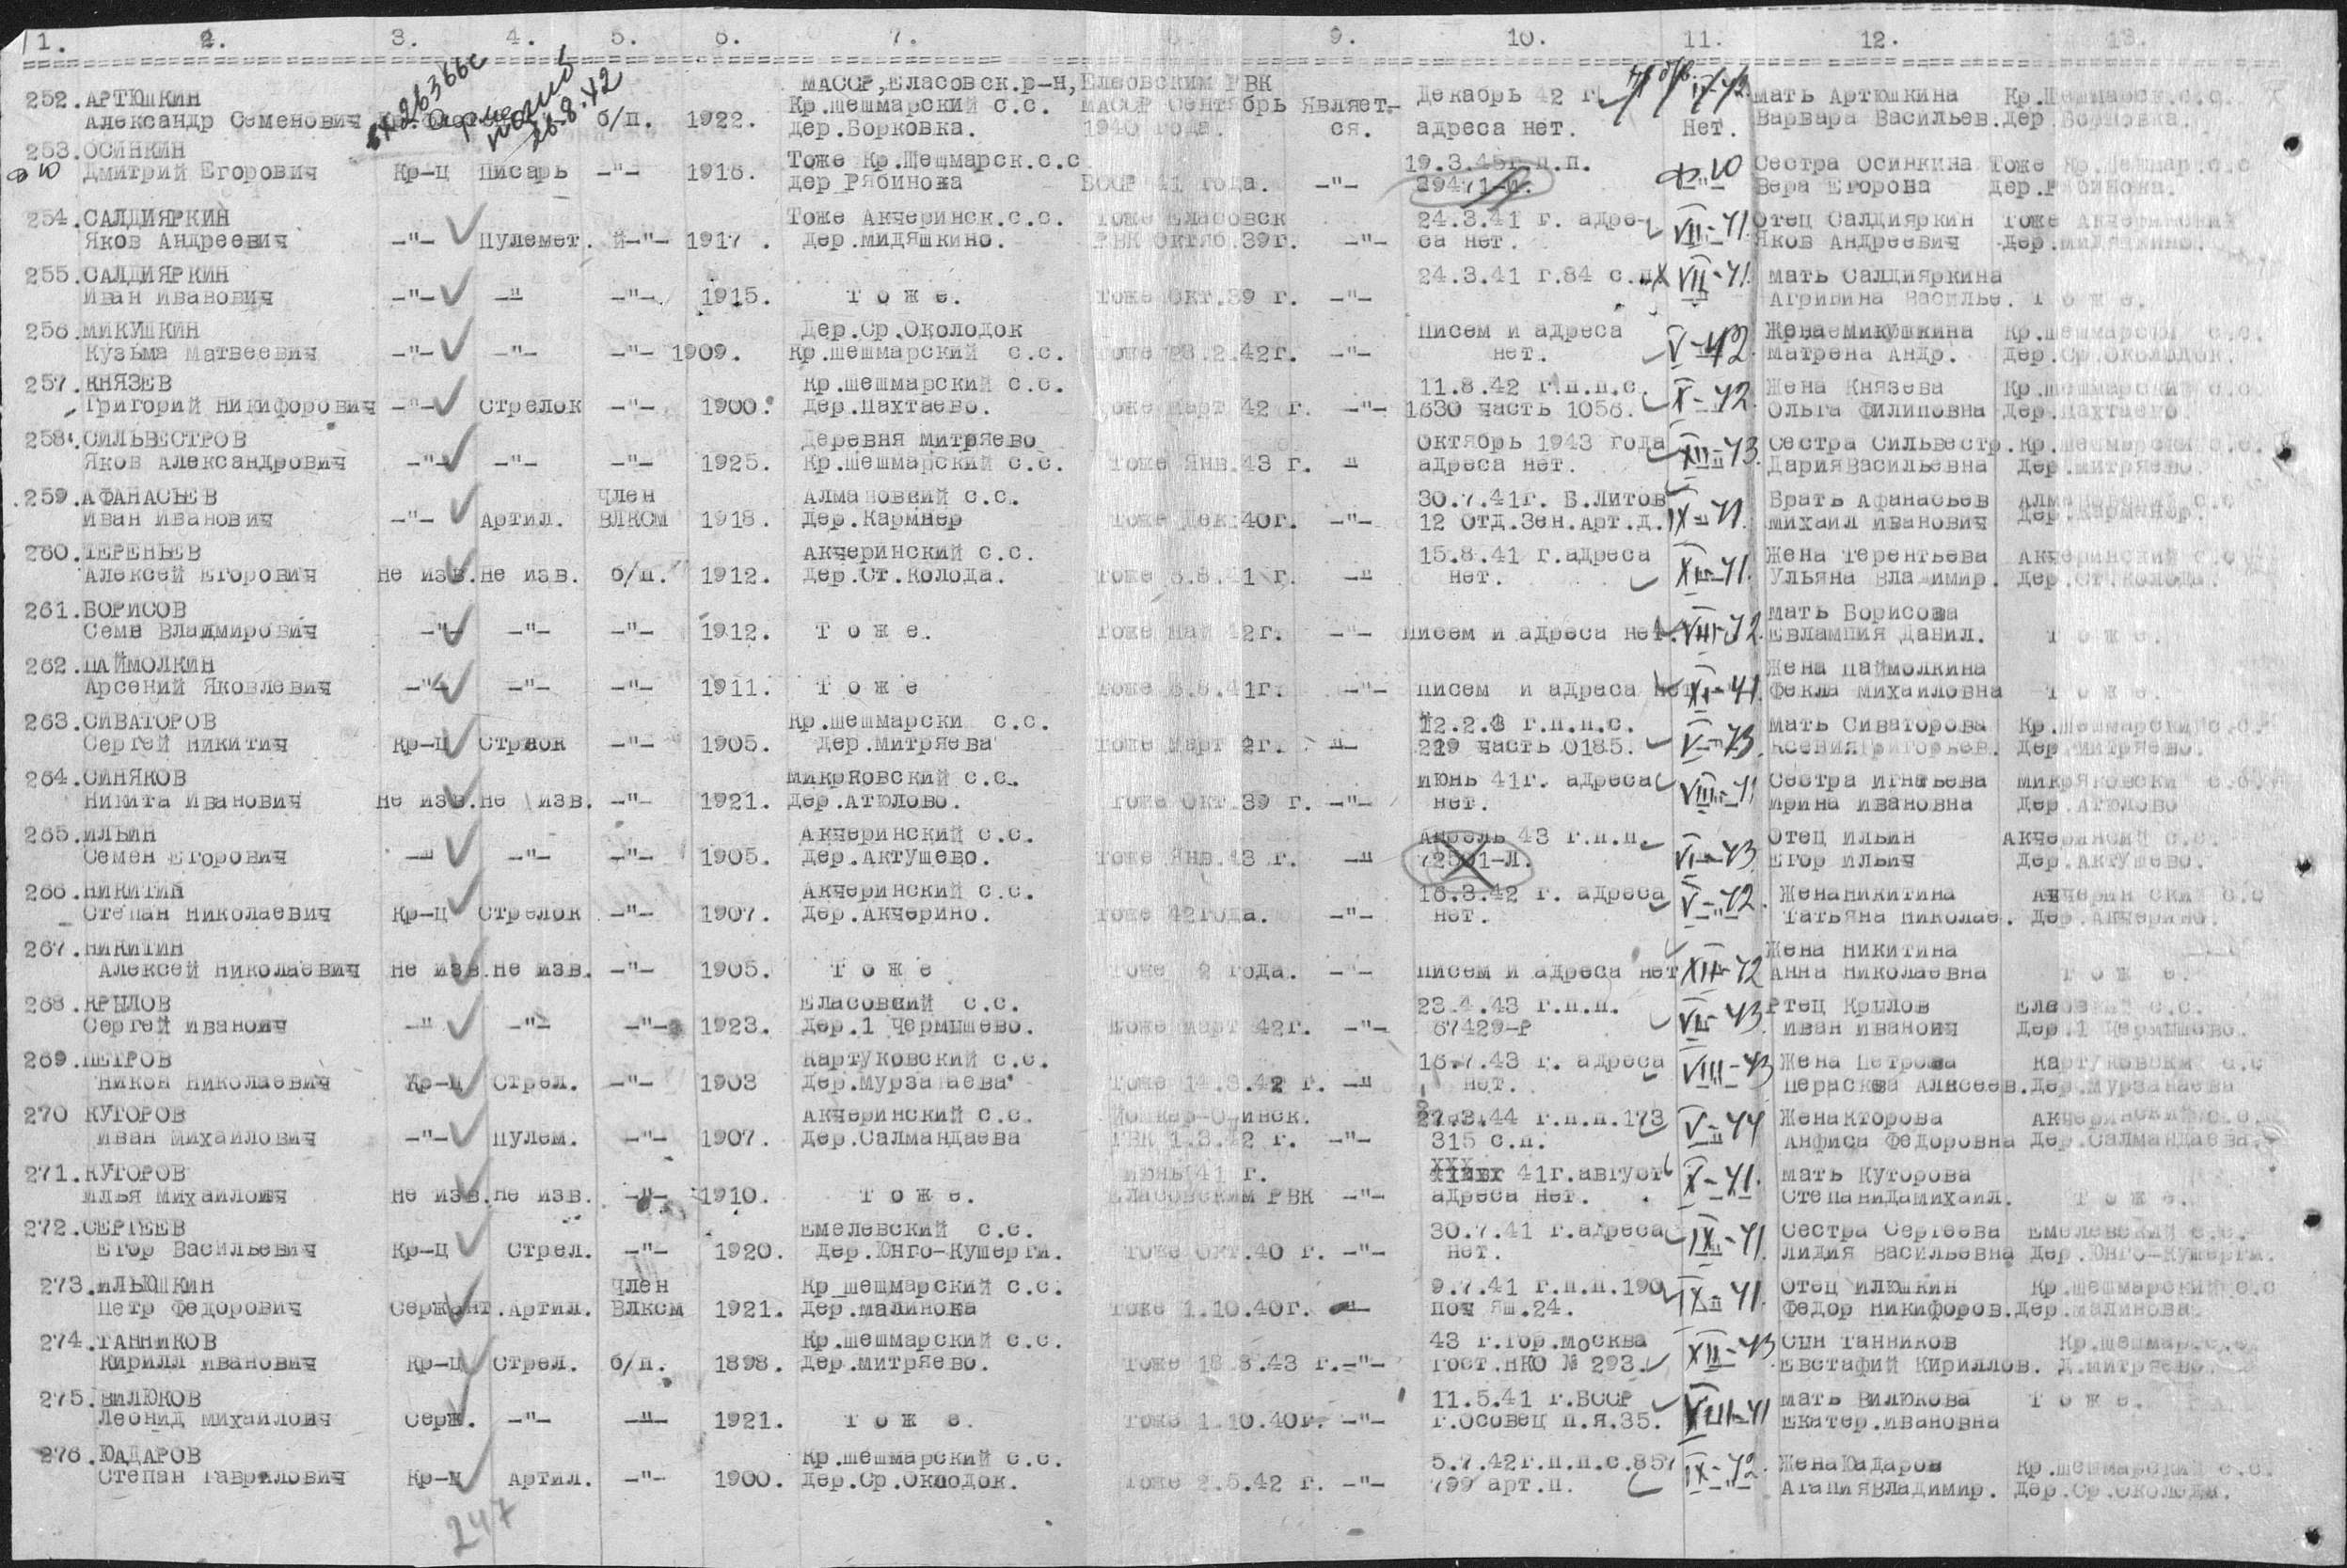 1. 2. 3. 4. 5. 6. 7. 9. 10. 11. 12. 13.
МАССР, Еласовск.р-н, Еласовским РВК
252. АРТЮШКИН Кр.шешмарский с.с. МАССР Сентябрь Являет- Декабрь 42 г. мать Артюшкина Кр.Шешмарск.с.с.
Александр Семенович б/п. 1922. дер.Борковка. 1940 года. ся. адреса нет. Нет. Варвара Васильев. дер Борковка.
253. ОСИНКИН Тоже Кр.Шешмарск.с.с 19.3.45г.п.п. Сестра Осинкина Тоже Кр.Шешмар.с.с
Дмитрий Егорович Кр-ц Писарь -"- 1916. дер Рябинока БССР 41 года. -"- 29471-п. Ф.Ю Вера Егорова дер.Рябинока.
254. САЛДИЯРКИН Тоже Акчеринск.с.с. Тоже Еласовск 24.3.41 г. адре- VII-41 Отец Салдияркин Тоже Акчеринский
Яков Андреевич -"- Пулемет. й-"- 1917. дер.мидяшкино. РВК октяб.39г. -"- са нет. Яков Андреевич дер.мидяшкино.
255. САЛДИЯРКИН 24.3.41 г.84 с.п VII-41. мать Салдияркина
Иван Иванович -"- -"- -"- 1915. Т о ж е. Тоже Окт.39 г. -"- Агрипина Василье. Т о ж е.
256. МИКУШКИН Дер.Ср.Околодок Писем и адреса V-42 Жена Микушкина Кр.шешмарский с.с.
Кузьма Матвеевич -"- -"- -"- 1909. Кр.шешмарский с.с. Тоже 28.2.42г. -"- нет. Матрена Андр. дер.Ср.Околодок.
257. КНЯЗЕВ Кр.шешмарский с.с. 11.8.42 г.п.п.с. X-42. Жена Князева Кр.шешмарский с.с.
Григорий Никифорович -"- Стрелок -"- 1900. дер.Пахтаево. Тоже март 42 г. -"- 1630 часть 1056. Ольга Филиповна дер.Пахтаево
258. СИЛЬВЕСТРОВ Деревня Митряево Октябрь 1943 года XII-43. Сестра Сильвестр. Кр.шешмарский с.с.
Яков Александрович -"- -"- -"- 1925. Кр.Шешмарский с.с. Тоже Янв.43 г. -"- адреса нет. ДарияВасильевна дер.митряево.
259. АФАНАСЬЕВ Член Алмановкий с.с. 30.7.41г. Б.Литов Брать Афанасьев Алмановский с.с
Иван Иванович -"- Артил. ВЛКСМ 1918. дер.Кармнер Тоже Дек.40г. -"- 12 Отд.Зен.Арт.д. IX-41. михаил иванович дер.Карманер.
260. ТЕРЕНЬЕВ Акчеринский с.с. 15.8.41 г.адреса Жена Терентьева Акчеринский с.с
Алексей Егорович не изв. не изв. б/п. 1912. дер.Ст.Колода. Тоже 8.8.41 г. -"- нет. XI-41. Ульяна Владимир. дер.Ст.Колода.
261. БОРИСОВ мать Борисова
Семе Владмирович -"- -"- -"- 1912. Т о ж е. Тоже май 42г. -"- писем и адреса нет. VIII-42. Евлампия Данил. Т о ж е.
262. ПАЙМОЛКИН Жена Паймолкина
Арсений Яковлевич -"- -"- -"- 1911. Т о ж е Тоже 8.8.41г. -"- писем и адреса нет XI-41. Фекла Михаиловна Т о ж е.
263. СИВАТОРОВ Кр.шешмарски с.с. 12.2.3 г.п.п.с. мать Сиваторова Кр.шешмарский с.с.
Сергей Никитич Кр-ц Стрлок -"- 1905. дер.митряева Тоже март 2г. -"- 219 часть 0185. V-43. Ксения Григорьев. дер.митряево.
264. СИНЯКОВ микряковский с.с. июнь 41г. адреса VIII-41 Сестра игнатьева микряковски с.с.
Никита Иванович не изв. не изв. -"- 1921. дер.Атюлово. Тоже Окт.39 г. -"- нет. ирина ивановна дер.Атюлово
265. ИЛЬИН Акчеринский с.с. Апрель 43 г.п.п. Отец ильин Акчеринский с.с.
Семен Егорович -"- -"- -"- 1905. дер.Актушево. Тоже Янв.43 г. -"- 72501-Л. VI-43 Егор ильич дер.Актушево.
266. НИКИТИН Акчеринский с.с. 16.3.42 г. адреса V-42. Жена никитина Акчерин ски с.с
Степан Николаевич Кр-ц Стрелок -"- 1907. дер.Акчерино. Тоже 42года. -"- нет. Татьяна Николае. дер.Акчерино.
267. НИКИТИН Жена никитина
Алексей Николаевич не изв. не изв. -"- 1905. Т о ж е Тоже 2 года. -"- писем и адреса нет XII-42 Анна Николаевна Т о ж е.
268. КРЫЛОВ Еласовсий с.с. 23.4.43 г.п.п. Ртец Крылов Еласовкий с.с.
Сергей Иваноич -"- -"- -"- 1923. дер.1 Чермышево. Тоже март 42г. -"- 67429-Р VII-43. иван иваноич дер.1 Чермышево.
269. ПЕТРОВ Картуковский с.с. 16.7.43 г. адреса VIII-43 Жена Петрова Картуковски с.с
Никон Николаевич Кр-ц Стрел. -"- 1903 дер.мурзанаева Тоже 14.3.42 г. -"- нет. Пераскева Алксеев. дер.мурзанаева
270 КУТОРОВ Акчеринский с.с. Йошкар-Олинск. 27.3.44 г.п.п.173 V-44 Жена кторова Акчеринский с.с.
иван михаилович -"- Пулем. -"- 1907. дер.Салмандаева ГВК 1.3.42 г. -"- 315 с.п. Анфиса Федоровна дер.Салмандаева.
271. КУТОРОВ июнь 41 г. 41г.август X-41. мать Куторова
илья михаилоич не изв. не изв. -"- 1910. Т о ж е. Еласовским РВК -"- адреса нет. Степанидамихаил. Т о ж е.
272. СЕРГЕЕВ Емелевский с.с. 30.7.41 г.адреса IX-41 Сестра Сергеева Емелевский с.с.
Егор Васильевич Кр-ц Стрел. -"- 1920. дер.Юнго-Кушерги. Тоже Окт.40 г. -"- нет. лидия Васильевна дер.Юнго-Кушерги.
273. ИЛЬЮШКИН Член Кр шешмарский с.с. 9.7.41 г.п.п.190 IX-41. Отец илюшкин Кр.шешмарский с.с
Петр Федорович Сержант. Артил. Влксм 1921. дер.малинока Тоже 1.10.40г. -"- поч яш.24. Федор никифоров. дер.малинова
274. ТАННИКОВ Кр.шешмарский с.с. 43 г.гор.москва XII-43 Сын Танников Кр.шешмар.с.с.
Кирилл Иванович Кр-ц Стрел. б/п. 1898. дер.митряево. Тоже 18.8.43 г.-"- Гост.НКО № 293. Евстафий Кириллов. д.митряево.
275. ВИЛЮКОВ 11.5.41 г.БССР мать Вилюкова Т о ж е.
Леонид михаилоич Серж. -"- -"- 1921. Т о ж е. Тоже 1.10.40г. -"- г.Осовец п.я.35. VIII-41 Екатер.ивановна
276. ЮАДАРОВ Кр.шешмарский с.с. 5.7.42г.п.п.с.857 IX-42. ЖенаЮадаров Кр.шешмарский с.с.
Степан Гаврилович Кр-ц Артил. -"- 1900. дер.Ср.Околодок. Тоже 2.5.42 г. -"- 799 арт.п. АгапияВладимир. дер.Ср.Околодк.
247